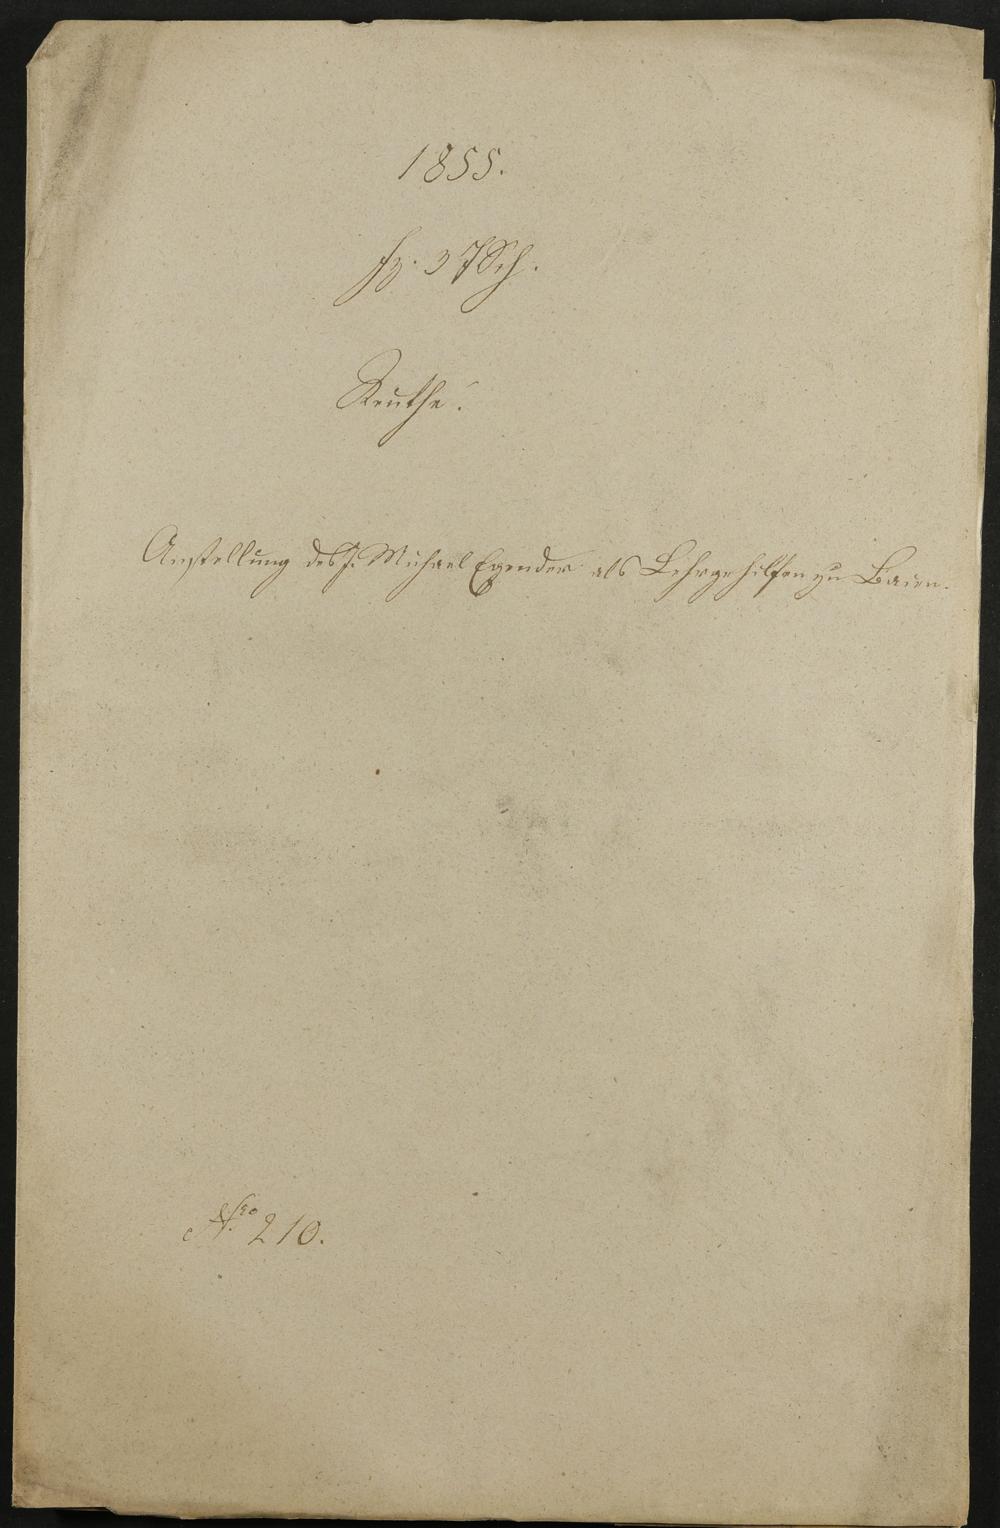 1855.
fz. 37 Sch.
Reuthe.
Anstellung des J. Michael Egender als Lehrgehilfen zu Baien.
Nro 210.